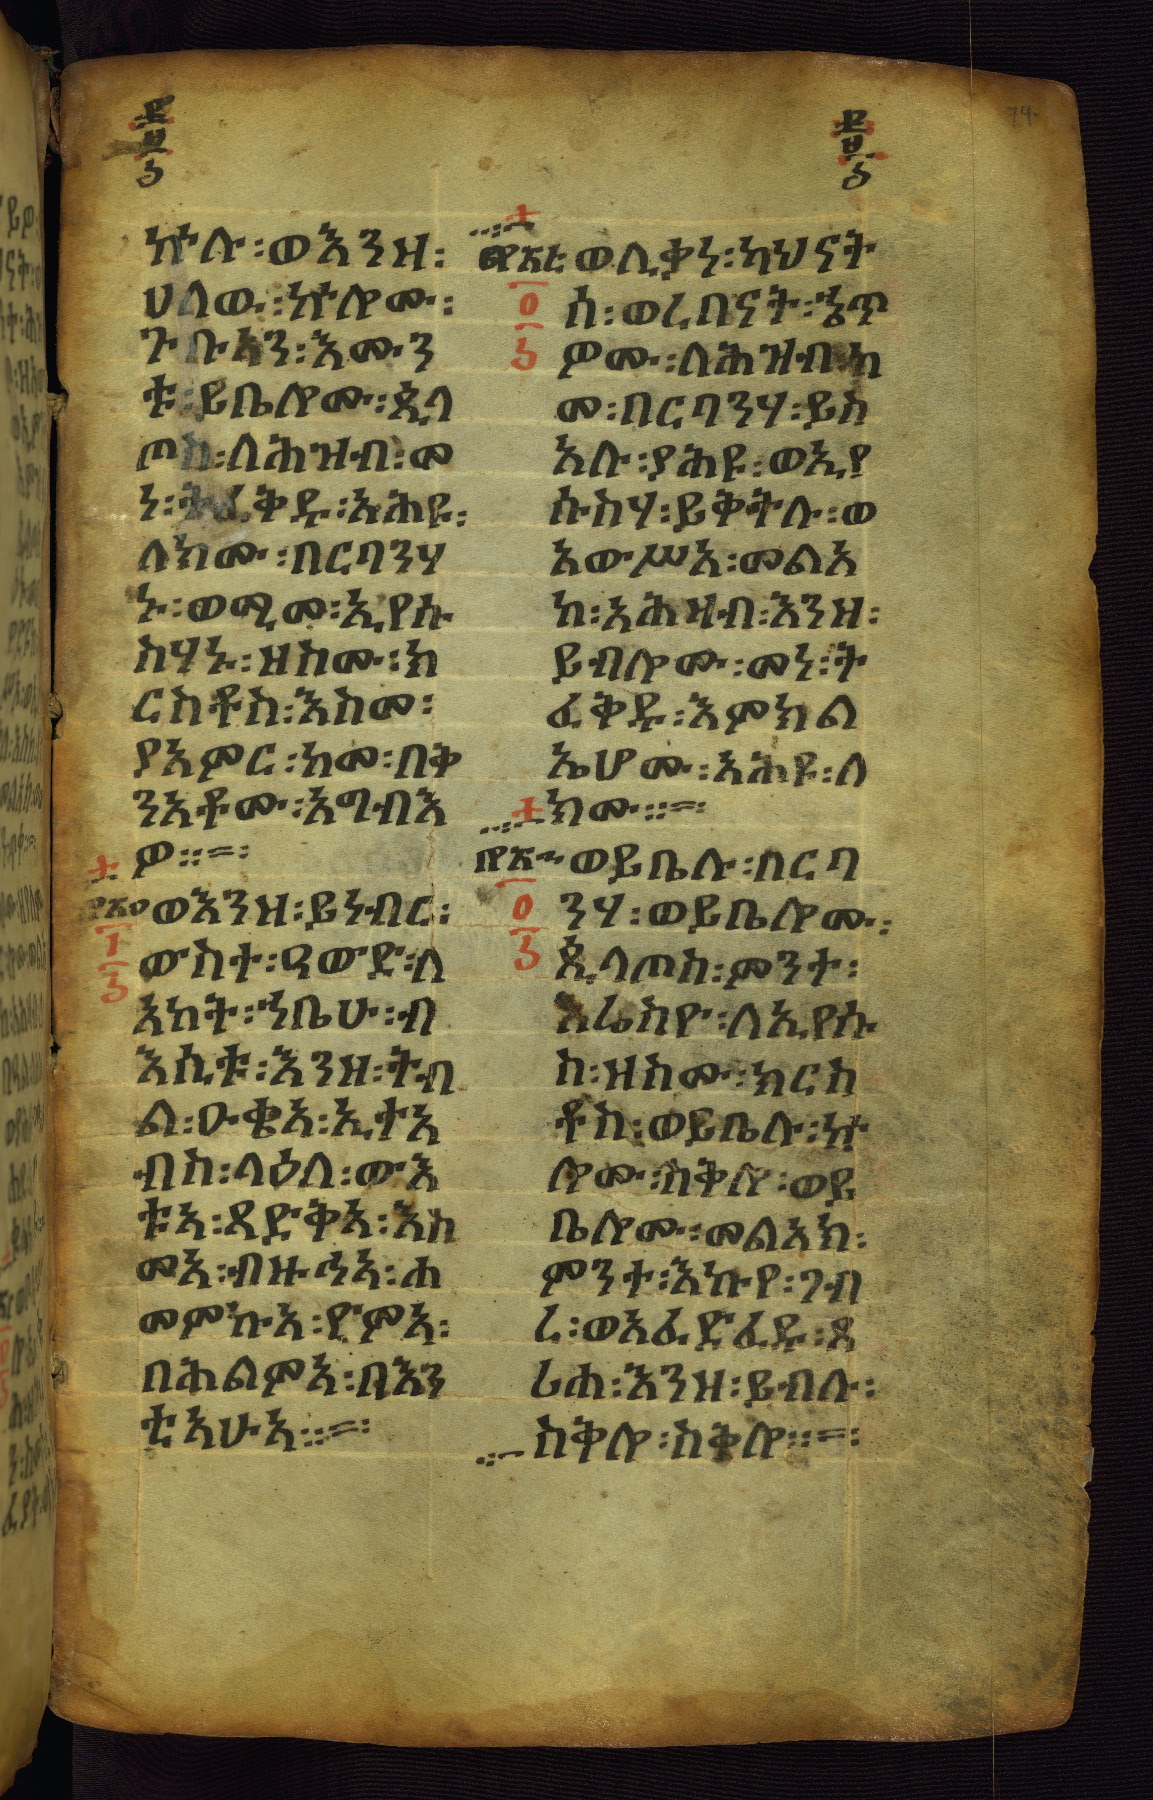 ኵሉ ፡ ወእንዘ ፡
ሀለዉ ፡ ኵሎሙ ፡
ጉቡኣን ፡ እሙን
ቱ ፡ ይቤሎሙ ፡ ጲላ
ጦስ ፡ ለሕዝብ ፡ መ
ነ ፡ ትፈቅዱ ፡ አሕዩ ፡
ለክሙ ፡ በርባንሃ
ኑ ፡ ወሚመ ፡ ኢየሱ
ስሃኑ ፡ ዘስሙ ፡ ክ
ርስቶስ ፡ እስመ ፡
ያአምር ፡ ከመ ፡ በቅ
ንአቶሙ ፡ አግብእ
ዎ ።=፡
ወእንዘ ፡ ይነብር ፡
ውስተ ፡ ዓውድ ፡ ለ
አከት ፡ ኀቤሁ ፡ ብ
እሲቱ ፡ እንዘ ፡ ትብ
ል ፡ ዑቂአ ፡ ኢተአ
ብስ ፡ ላዕለ ፡ ውእ
ቱአ ፡ ጻድቅአ ፡ እስ
መአ ፡ ብዙኀአ ፡ ሐ
መምኩአ ፡ ዮምአ ፡
በሕልምአ ፡ በእን
ቲአሁአ ።=፡
ወሊቃነ ፡ ካህናት
ሰ ፡ ወረበናት ፡ ኄጥ
ዎሙ ፡ ለሕዝብ ፡ ከ
መ ፡ በርባንሃ ፡ ይስ
አሉ ፡ ያሕዩ ፡ ወኢየ
ሱስሃ ፡ ይቅትሉ ፡ ወ
አውሥአ ፡ መልአ
ከ ፡ አሕዛብ ፡ እንዘ ፡
ይብሎሙ ፡ መነ ፡ ት
ፈቅዱ ፡ እምክል
ኤሆሙ ፡ አሕዩ ፡ ለ
ክሙ ።=፡
ወይቤሉ ፡ በርባ
ንሃ ፡ ወይቤሎሙ ፡
ጲላጦስ ፡ ምንተ ፡
እሬስዮ ፡ ለኢየሱ
ስ ፡ ዘስሙ ፡ ክርስ
ቶስ ፡ ወይቤሉ ፡ ኵ
ሎሙ ፡ ስቅሎ ፡ ወይ
ቤሎሙ ፡ መልአክ ፡
ምንተ ፡ እኩየ ፡ ገብ
ረ ፡ ወአፈድፈዱ ፡ ጸ
ሪሐ ፡ እንዘ ፡ ይብሉ ፡
ስቅሎ ፡ ስቅሎ ።=፡